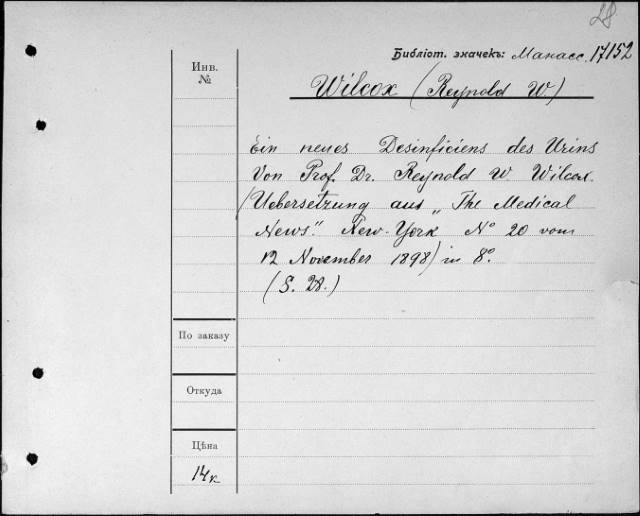 28
Библіот. значекъ: Манасс. 17152
Инв.
№
Wilcox (Reynold W)
Ein neues Desinficiens des Urins
Von Prof. Dr. Reynold W Wilcox.
(Uebersetzung aus „The Medical
News". New-York No 20 vom
12 November 1898) in 8°.
(S. 28.)
По заказу
Откуда
Цѣна
14 к